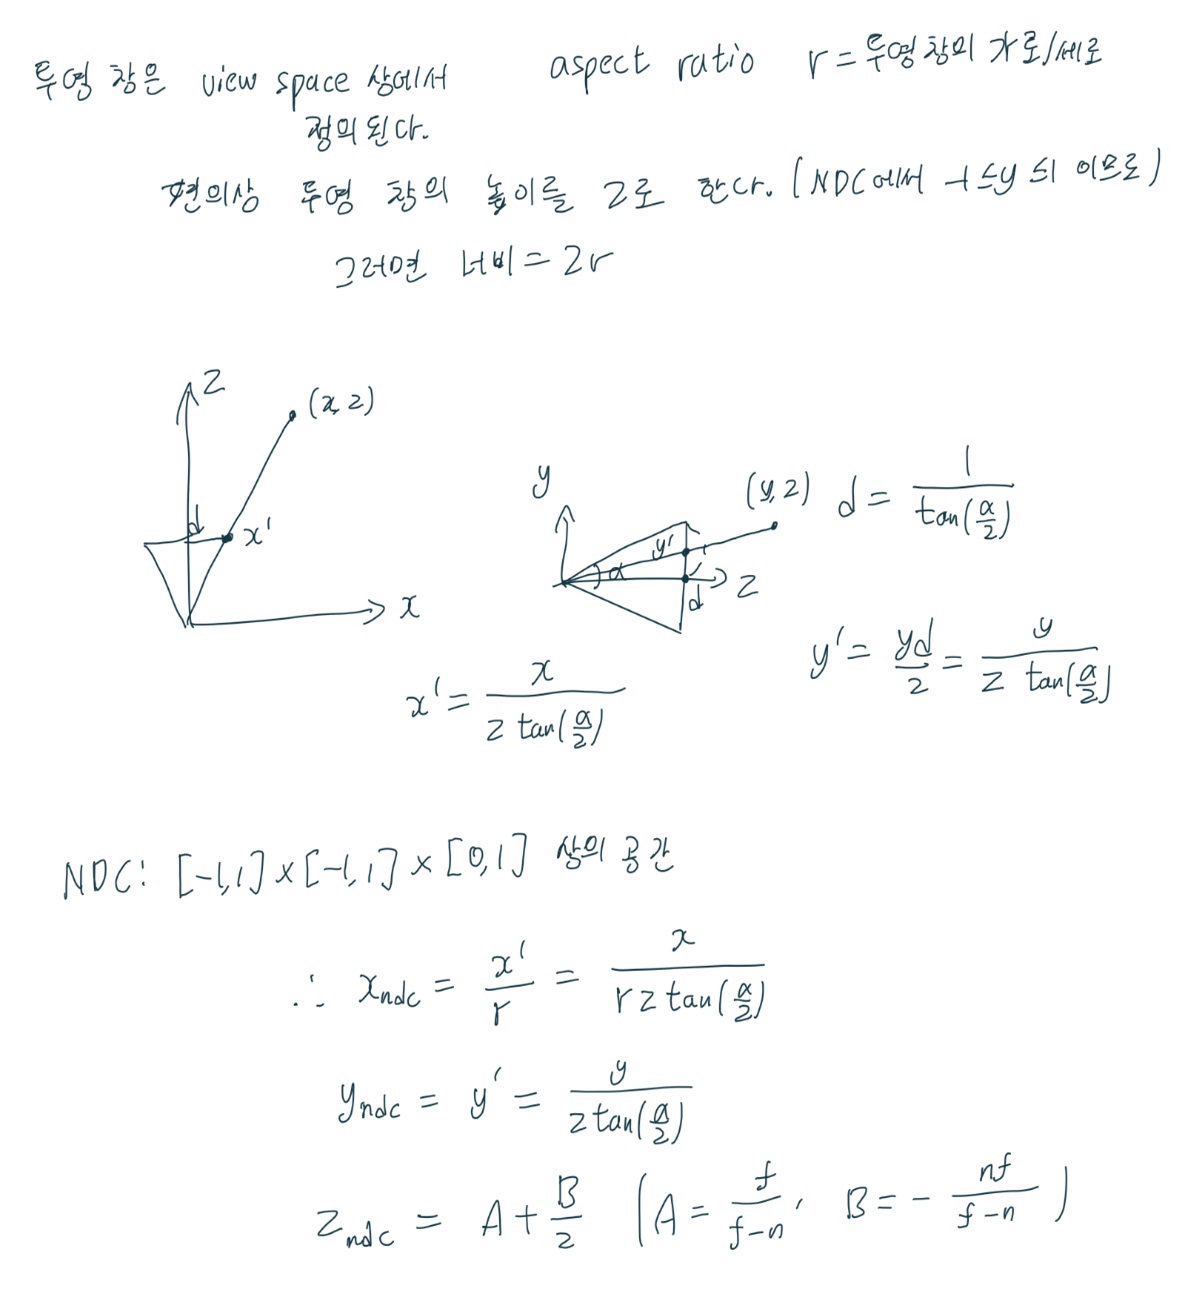 투영 창은 view space 상에서 정의된다.
aspect ratio r = 투영창의 가로/세로
편의상 투영 창의 높이를 2로 한다. (NDC에서 -1 ≤ y ≤ 1 이므로)
그러면 너비 = 2r
z
(x, z)
d
x'
x
x' = x / (z tan(α/2))
y
(y, z)
y'
1
α
d
z
d = 1 / tan(α/2)
y' = yd/z = y / (z tan(α/2))
NDC: [-1,1] × [-1,1] × [0,1] 상의 공간
∴ x_ndc = x'/r = x / (r z tan(α/2))
y_ndc = y' = y / (z tan(α/2))
z_ndc = A + B/z (A = f/(f-n), B = - nf/(f-n))